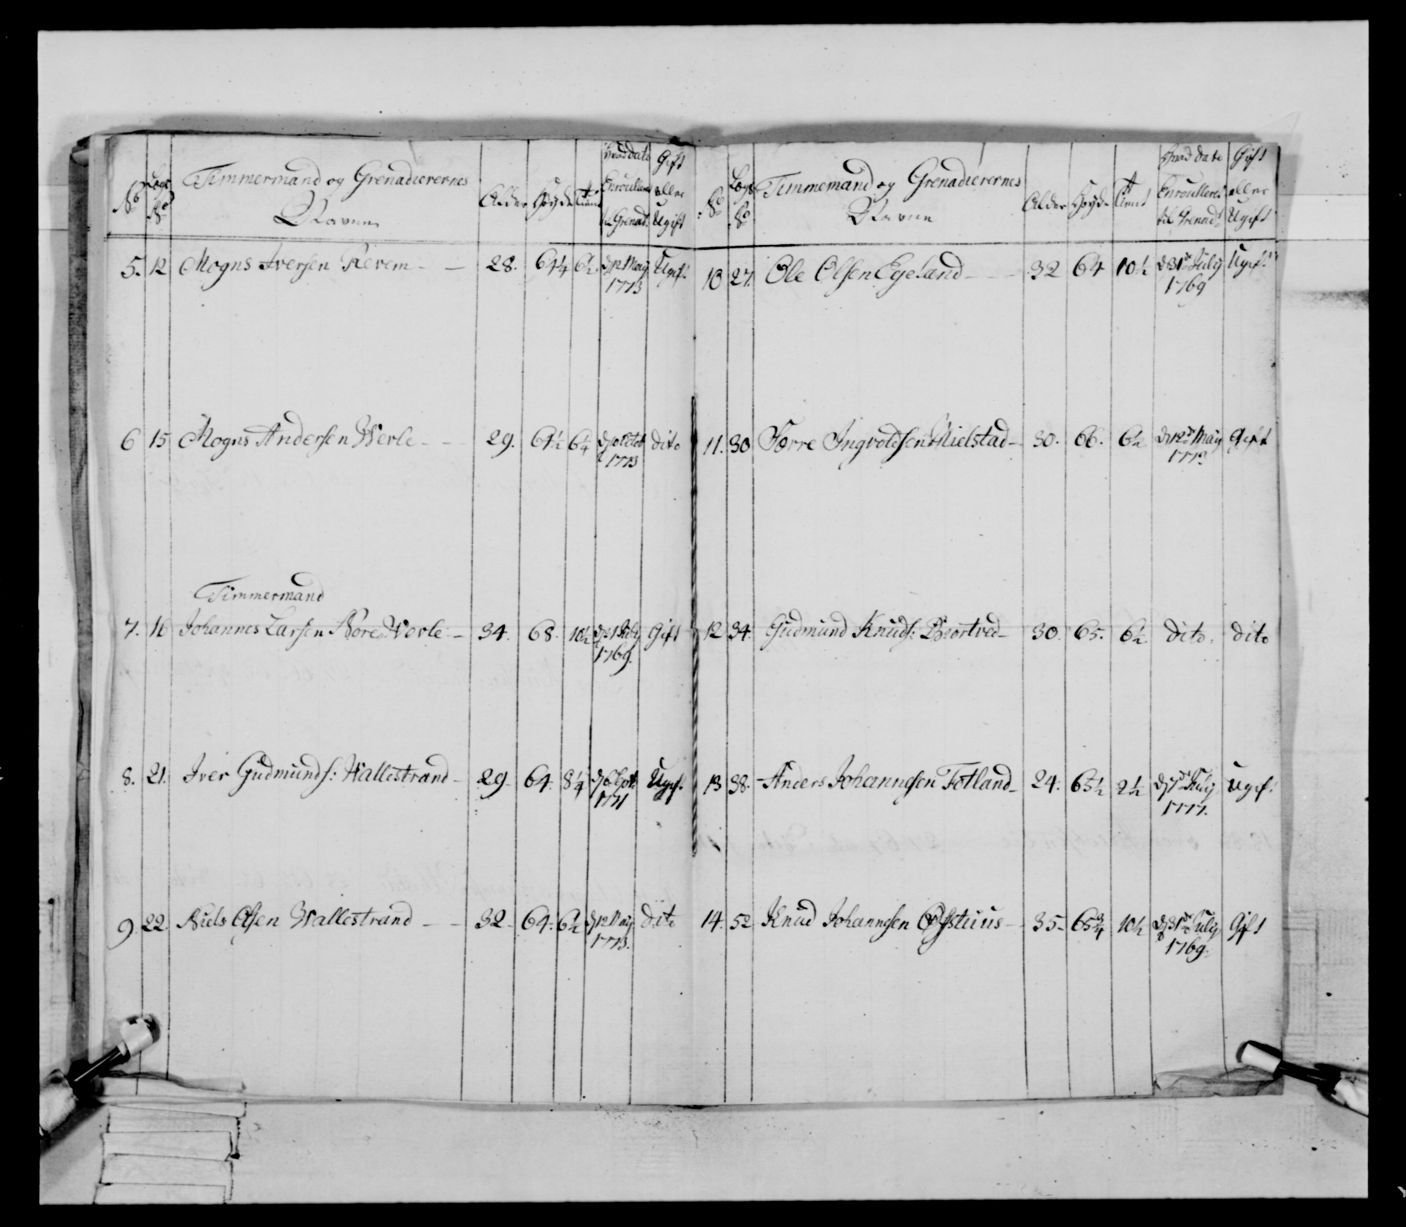 No Legs No Timmermand og Grenadierernes Navne Alder Høyde Tient Hvad dato Enroulleret til Grenad. Gift eller Ugift
5. 12 Mogns Iversen Revem 28. 64¼ 6½ d. 12 Maij 1773 Ugift
6 15 Mogns Andersen Werle 29. 64½ 6¼ 1773 dito
Timmermand
7. 16 Johannes Larsen Nore Werle 34. 68. 10½ d. 31 July 1769. Gift
8. 21. Iver Gudmunds: Wallestrand 29. 64. 8¼ 1771 Ugif.
9. 22. Niels Olsen Wallestrand 32. 64. 6½ d. 12 Maij 1773. dito
No Legs No Timmemand og Grenadierernes Navne Alder Høyde Tient Hvad dato Enroulleret til Grenad. Gift eller Ugift
10 27. Ole Olsen Egeland 32 64 10½ d. 31te July 1769 Ugif:
11. 30 Torre Ingvoldsen Mielstad 30. 66. 6½ d. 12te Maij 1773 Gift
12 34. Gudmund Knuds: Beortved 30. 65. 6½ dito. dito
13 38. Anders Johannesen Fotland 24. 65½ 2½ July 1777. Ugif:
14. 52 Knud Johannesen 35. 65¾ 10½ d. 31te July 1769. Gift